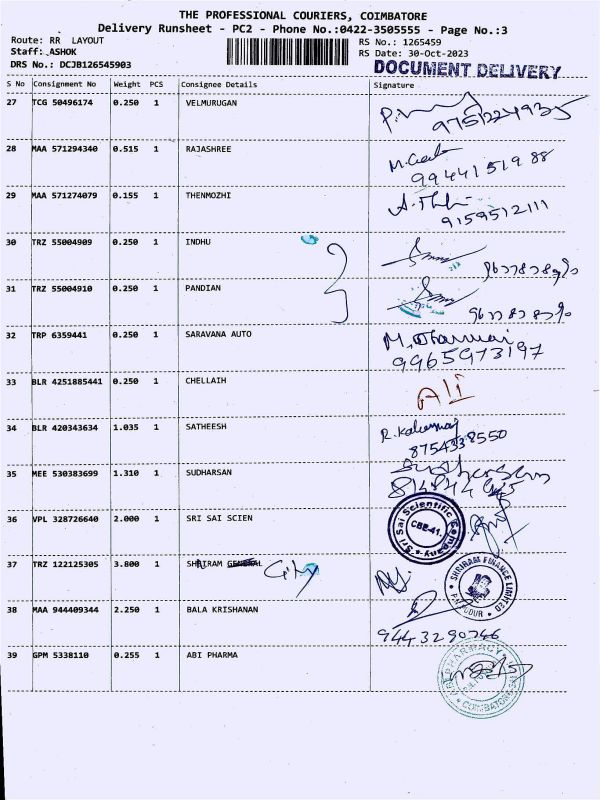 THE PROFESSIONAL COURIERS, COIMBATORE
Delivery Runsheet - PC2 - Phone No.:0422-3505555 - Page No.:3
Route: RR LAYOUT RS No.: 1265459
Staff: ASHOK RS Date: 30-Oct-2023
DRS No.: DCJB126545903 DOCUMENT DELIVERY
S No Consignment No Weight PCS Consignee Details Signature
27 TCG 50496174 0.250 1 VELMURUGAN
28 MAA 571294340 0.515 1 RAJASHREE
9944151988
29 MAA 571274079 0.155 1 THENMOZHI
9159512111
30 TRZ 55004909 0.250 1 INDHU
31 TRZ 55004910 0.250 1 PANDIAN
32 TRP 6359441 0.250 1 SARAVANA AUTO
9965973197
33 BLR 4251885441 0.250 1 CHELLAIH Ali
34 BLR 420343634 1.035 1 SATHEESH
8754338550
35 MEE 530383699 1.310 1 SUDHARSAN
36 VPL 328726640 2.000 1 SRI SAI SCIEN Sri Sai Scientific Company CBE-41.
37 TRZ 122125305 3.800 1 SHRIRAM GENERAL City SHRIRAM FINANCE LIMITED
38 MAA 944409344 2.250 1 BALA KRISHANAN
9443290746
39 GPM 5338110 0.255 1 ABI PHARMA